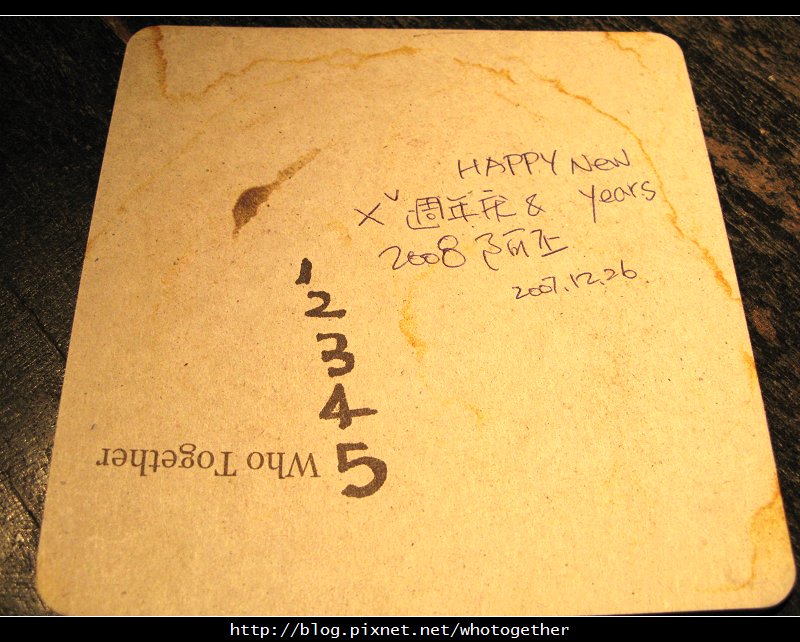 HAPPY New
years
X˅週年庆 &
2008
2007.12.26
1
2
3
4
5
Who Together
http://blog.pixnet.net/whotogether